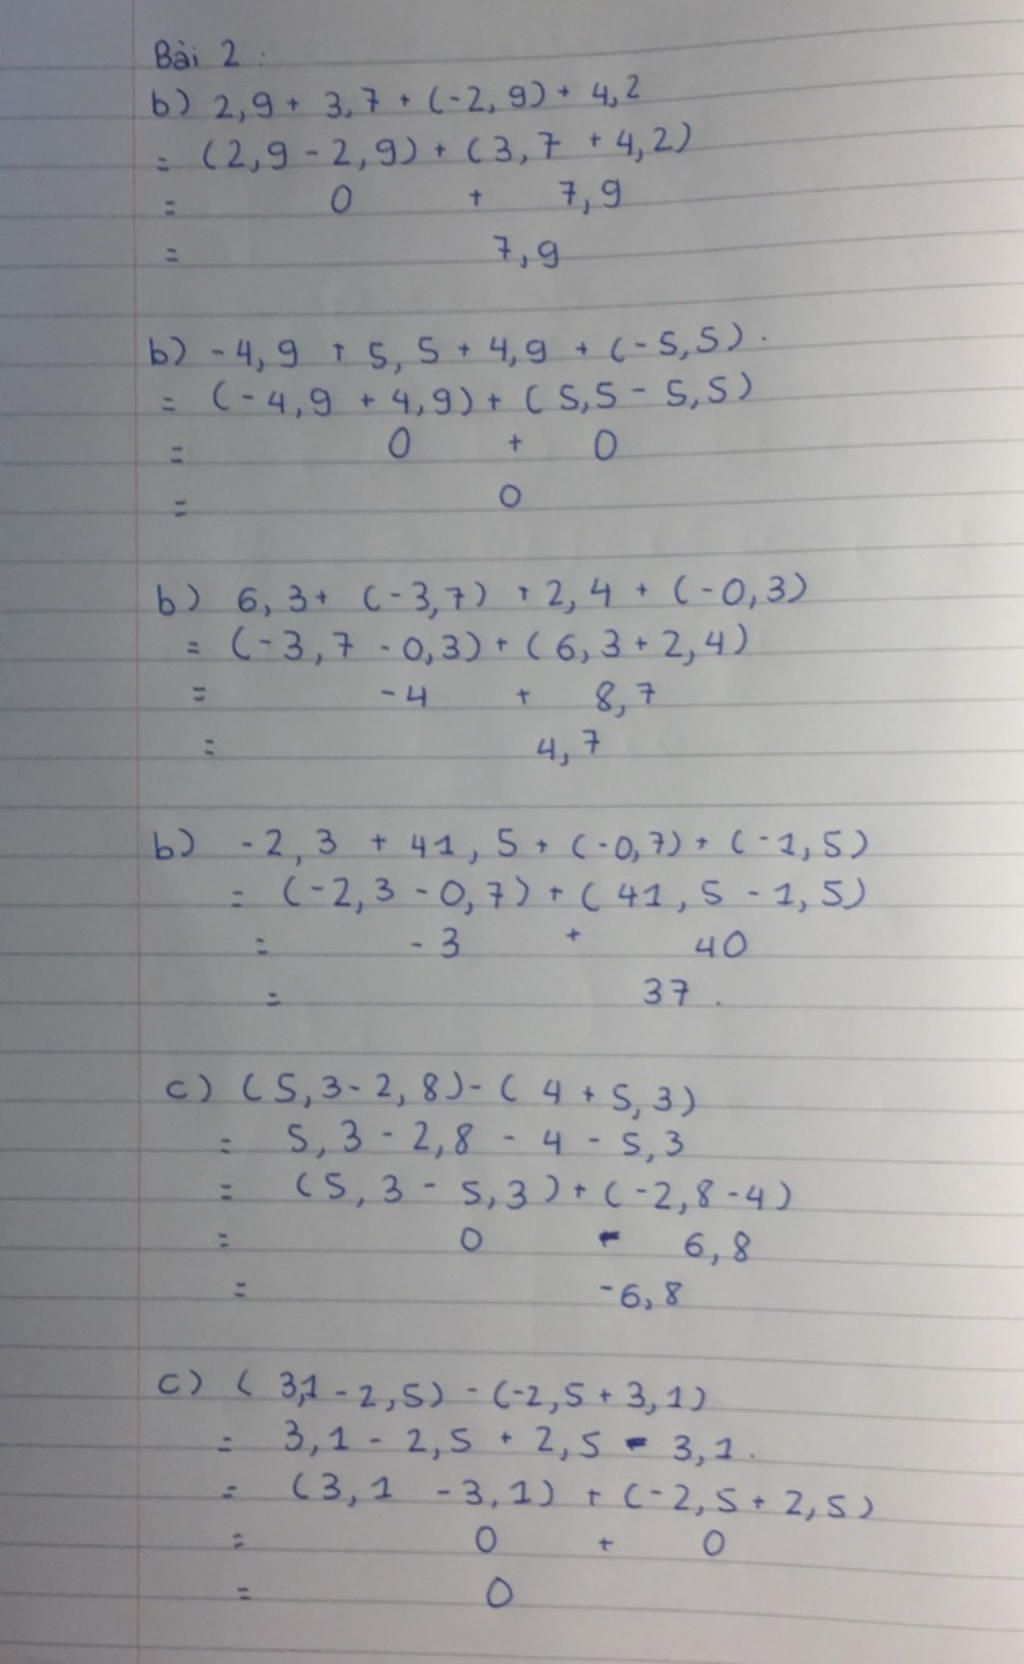 Bài 2 :
b) 2,9 + 3,7 + (-2,9) + 4,2
= (2,9 - 2,9) + (3,7 + 4,2)
= 0 + 7,9
= 7,9
b) -4,9 + 5,5 + 4,9 + (-5,5).
= (-4,9 + 4,9) + (5,5 - 5,5)
= 0 + 0
= 0
b) 6,3 + (-3,7) + 2,4 + (-0,3)
= (-3,7 - 0,3) + (6,3 + 2,4)
= -4 + 8,7
= 4,7
b) -2,3 + 41,5 + (-0,7) + (-1,5)
= (-2,3 - 0,7) + (41,5 - 1,5)
= -3 + 40
= 37.
c) (5,3 - 2,8) - (4 + 5,3)
= 5,3 - 2,8 - 4 - 5,3
= (5,3 - 5,3) + (-2,8 - 4)
= 0 - 6,8
= -6,8
c) (3,1 - 2,5) - (-2,5 + 3,1)
= 3,1 - 2,5 + 2,5 - 3,1.
= (3,1 - 3,1) + (-2,5 + 2,5)
= 0 + 0
= 0